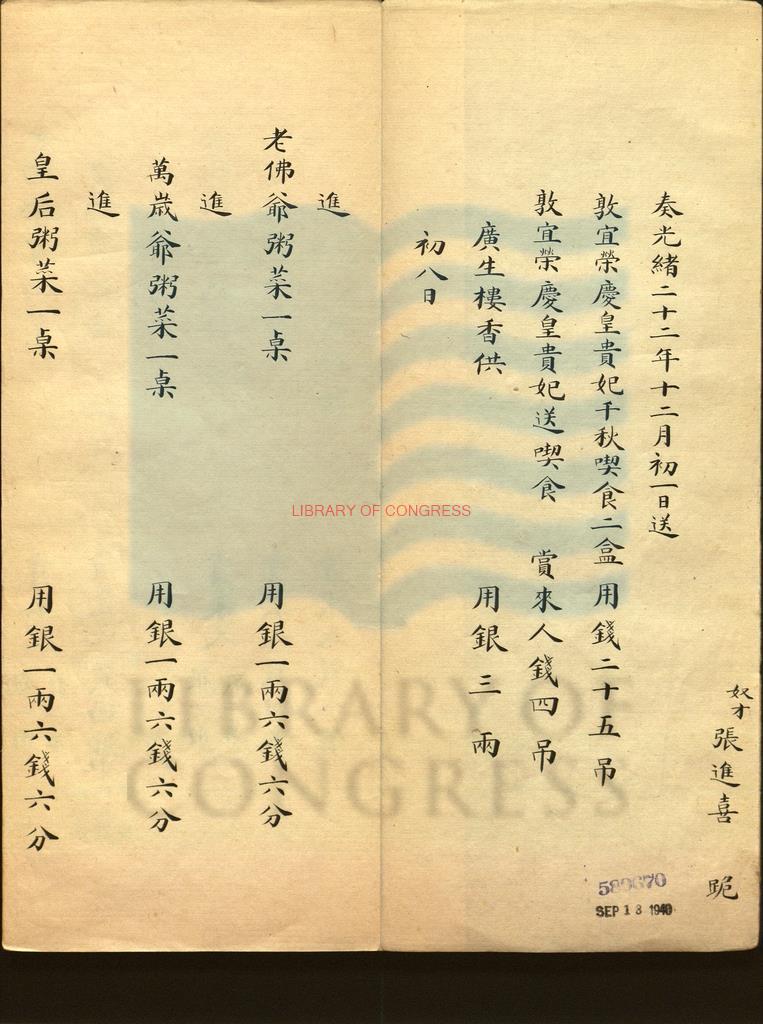 奴才張進喜 跪
奏光緒二十二年十二月初一日送
敦宜榮慶皇貴妃千秋喫食二盒 用錢二十五吊
敦宜榮慶皇貴妃送喫食 賞來人錢四吊
廣生樓香供 用銀三兩
初八日
進
老佛爺粥菜一桌 用銀一兩六錢六分
進
萬歲爺粥菜一桌 用銀一兩六錢六分
進
皇后粥菜一桌 用銀一兩六錢六分
SEP 13 1940
LIBRARY OF CONGRESS
LIBRARY OF
CONGRESS